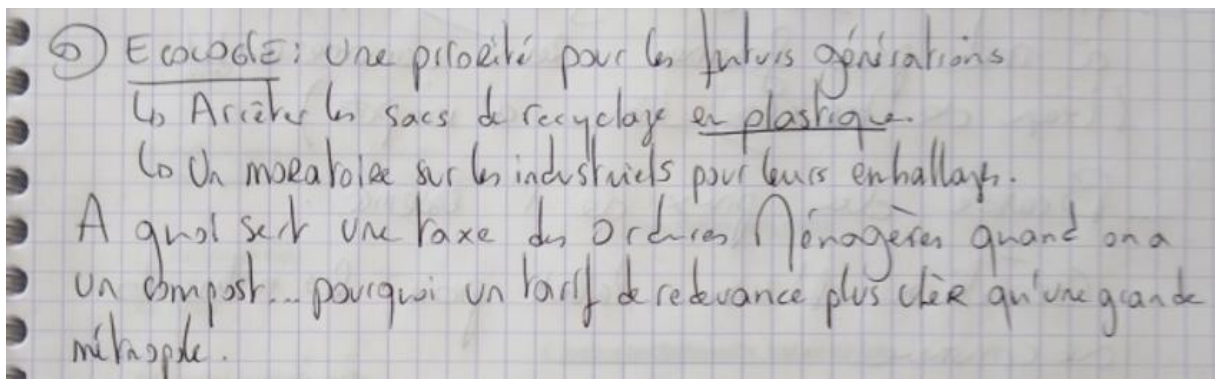 ⑥ ECOLOGIE: Une priorité pour les futurs générations
↳ Arrêter les sacs de recyclage en plastique.
↳ Un moratoire sur les industriels pour leurs emballages.
A quoi sert une taxe des Ordures Ménagères quand on a
un compost... pourquoi un tarif de redevance plus chère qu'une grande
métropole.